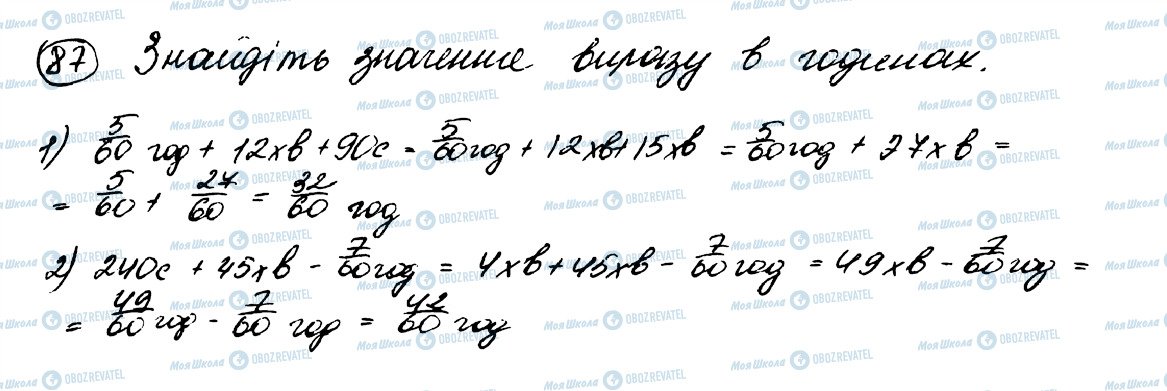 87 Знайдіть значення виразу в годинах.
1) 5/60 год + 12хв + 90с = 5/60 год + 12хв + 15хв = 5/60 год + 27хв =
= 5/60 + 27/60 = 32/60 год
2) 240с + 45хв - 7/60 год = 4хв + 45хв - 7/60 год = 49хв - 7/60 год =
= 49/60 год - 7/60 год = 42/60 год